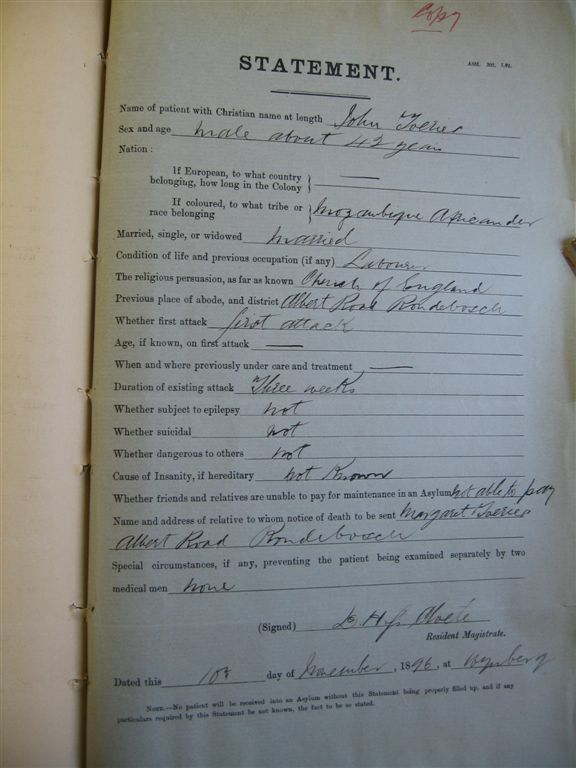 Copy
STATEMENT.
Name of patient with Christian name at length John
Sex and age male about 42 years
Nation :
If European, to what country
belonging, how long in the Colony } —
If coloured, to what tribe or
race belonging } Mozambique Africander
Married, single, or widowed married
Condition of life and previous occupation (if any) Labourer
The religious persuasion, as far as known Church of England
Previous place of abode, and district Albert Road Rondebosch
Whether first attack first attack
Age, if known, on first attack —
When and where previously under care and treatment —
Duration of existing attack Three weeks
Whether subject to epilepsy not
Whether suicidal not
Whether dangerous to others not
Cause of Insanity, if hereditary not Known
Whether friends and relatives are unable to pay for maintenance in an Asylum not able to pay
Name and address of relative to whom notice of death to be sent Margaret
Albert Road Rondebosch
Special circumstances, if any, preventing the patient being examined separately by two
medical men none
(Signed)
Resident Magistrate.
Dated this day of November, 1896, at Wynberg
NOTE.—No patient will be received into an Asylum without this Statement being properly filled up, and if any
particulars required by this Statement be not known, the fact to be so stated.